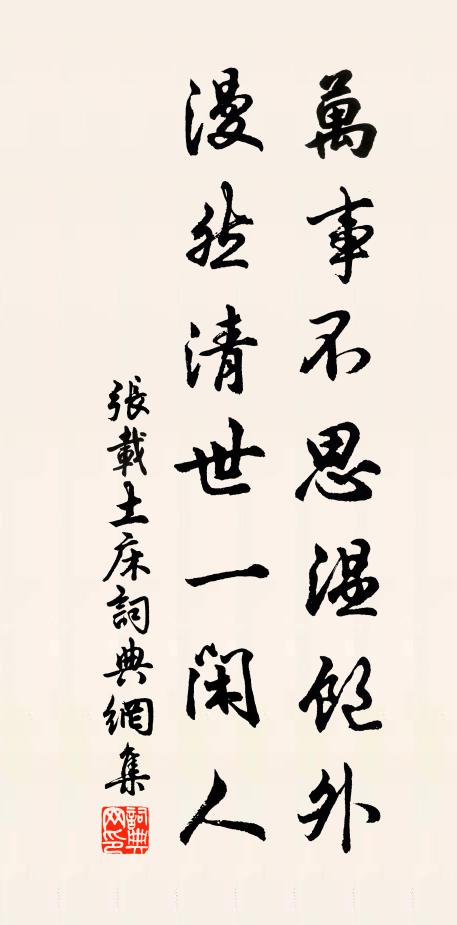 萬事不思溫飽外
漫然清世一閑人
張載土床詞典網集
詞典網印